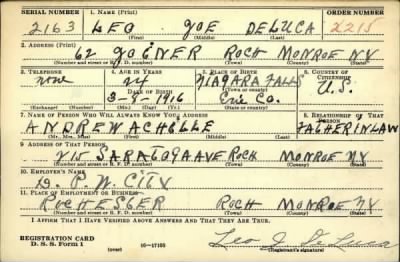 SERIAL NUMBER 1. NAME (Print) ORDER NUMBER
2163 LEO JOE DELUCA 2215
(First) (Middle) (Last)
2. ADDRESS (Print)
62 JOENER ROCH MONROE NY
(Number and street or R. F. D. number) (Town) (County) (State)
3. TELEPHONE 4. AGE IN YEARS 5. PLACE OF BIRTH 6. COUNTRY OF CITIZENSHIP
none 24 NIAGARA FALLS
DATE OF BIRTH U.S.
3-9-1916 Erie Co.
(Exchange) (Number) (Mo.) (Day) (Yr.) (State or country)
7. NAME OF PERSON WHO WILL ALWAYS KNOW YOUR ADDRESS 8. RELATIONSHIP OF THAT PERSON
ANDREW ACHELLE FATHER IN LAW
(First) (Middle) (Last)
9. ADDRESS OF THAT PERSON
215 SARATOGA AVE ROCH MONROE NY
(Number and street or R. F. D. number) (Town) (County) (State)
10. EMPLOYER'S NAME
D. P. W. CITY
11. PLACE OF EMPLOYMENT OR BUSINESS
ROCHESTER ROCH MONROE NY
(Number and street or R. F. D. number) (Town) (County) (State)
I AFFIRM THAT I HAVE VERIFIED ABOVE ANSWERS AND THAT THEY ARE TRUE.
REGISTRATION CARD
D. S. S. Form 1 (over) 16-17105 Leo J. De Luca
(Registrant's signature)